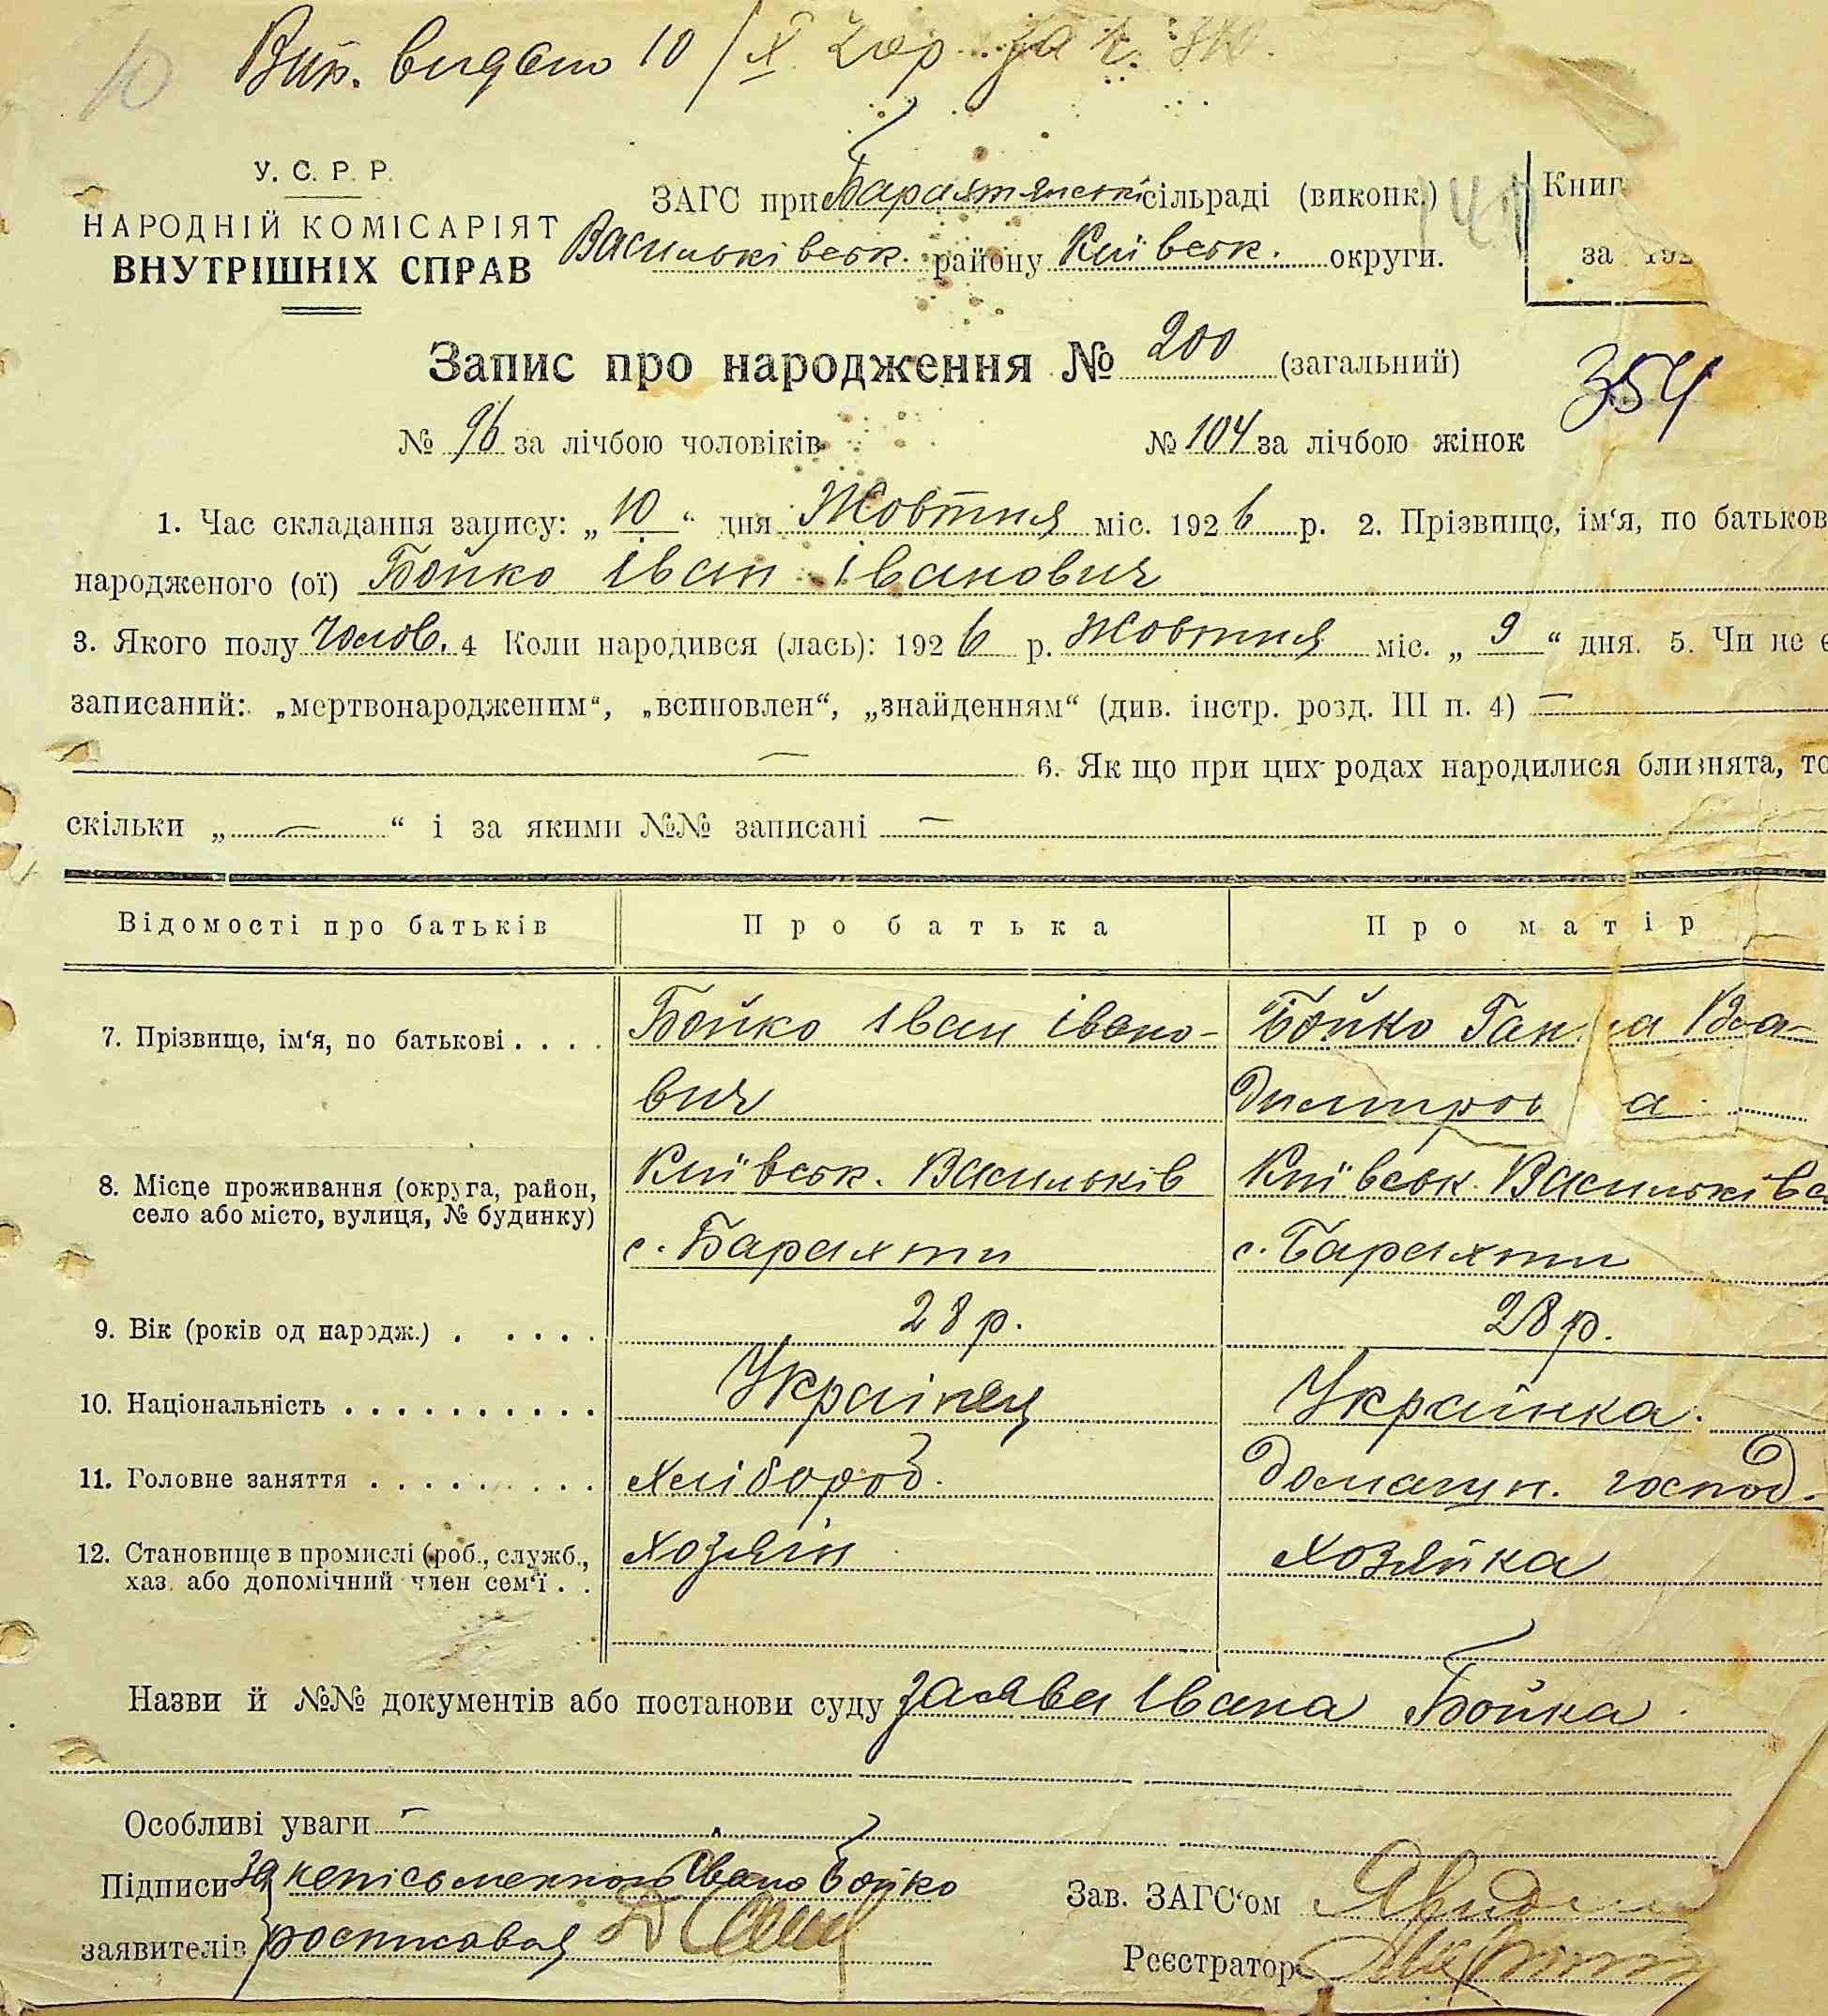 10
Вип. видано 10/X 26р. за №
У. С. Р. Р.
НАРОДНІЙ КОМІСАРІЯТ
ВНУТРІШНІХ СПРАВ
ЗАГС при Барахтянській сільраді (виконк.)
Васильківськ. району Київськ. округи.
Книг
за 192
Запис про народження № 200 (загальний)
354
№ 96 за лічбою чоловіків № 104 за лічбою жінок
1. Час складання запису: „ 10 “ дня Жовтня міс. 192 6 р. 2. Прізвище, ім‘я, по батьков
народженого (ої) Бойко Іван Іванович
3. Якого полу Чолов. 4 Коли народився (лась): 192 6 р. Жовтня міс. „ 9 “ дня. 5. Чи не є
записаний: „мертвонародженим“, „всиновлен“, „знайденням“ (див. інстр. розд. III п. 4) —
— 6. Як що при цих родах народилися близнята, то
скільки „ — “ і за якими №№ записані —
Відомості про батьків Про батька Про матір
7. Прізвище, ім‘я, по батькові . . . . Бойко Іван Івано- Бойко Ган а
вич Дмитров а
8. Місце проживання (округа, район, Київськ. Васильків Київськ. Васильківс
село або місто, вулиця, № будинку) с. Барахти с. Барахти
9. Вік (років од народж.) . . . . . 28 р. 28 р.
10. Національність . . . . . . . . . . Українец Українка.
11. Головне заняття . . . . . . . . . Хлібороб. Домашн. господ.
12. Становище в промислі (роб., служб., Хозяін Хозяйка
хаз. або допомічний член сем‘ї . .
Назви й №№ документів або постанови суду заява Івана Бойка.
Особливі уваги —
Підписи за неписьменного Івана Бойко
заявителів росписався
Зав. ЗАГС‘ом
Реєстратор